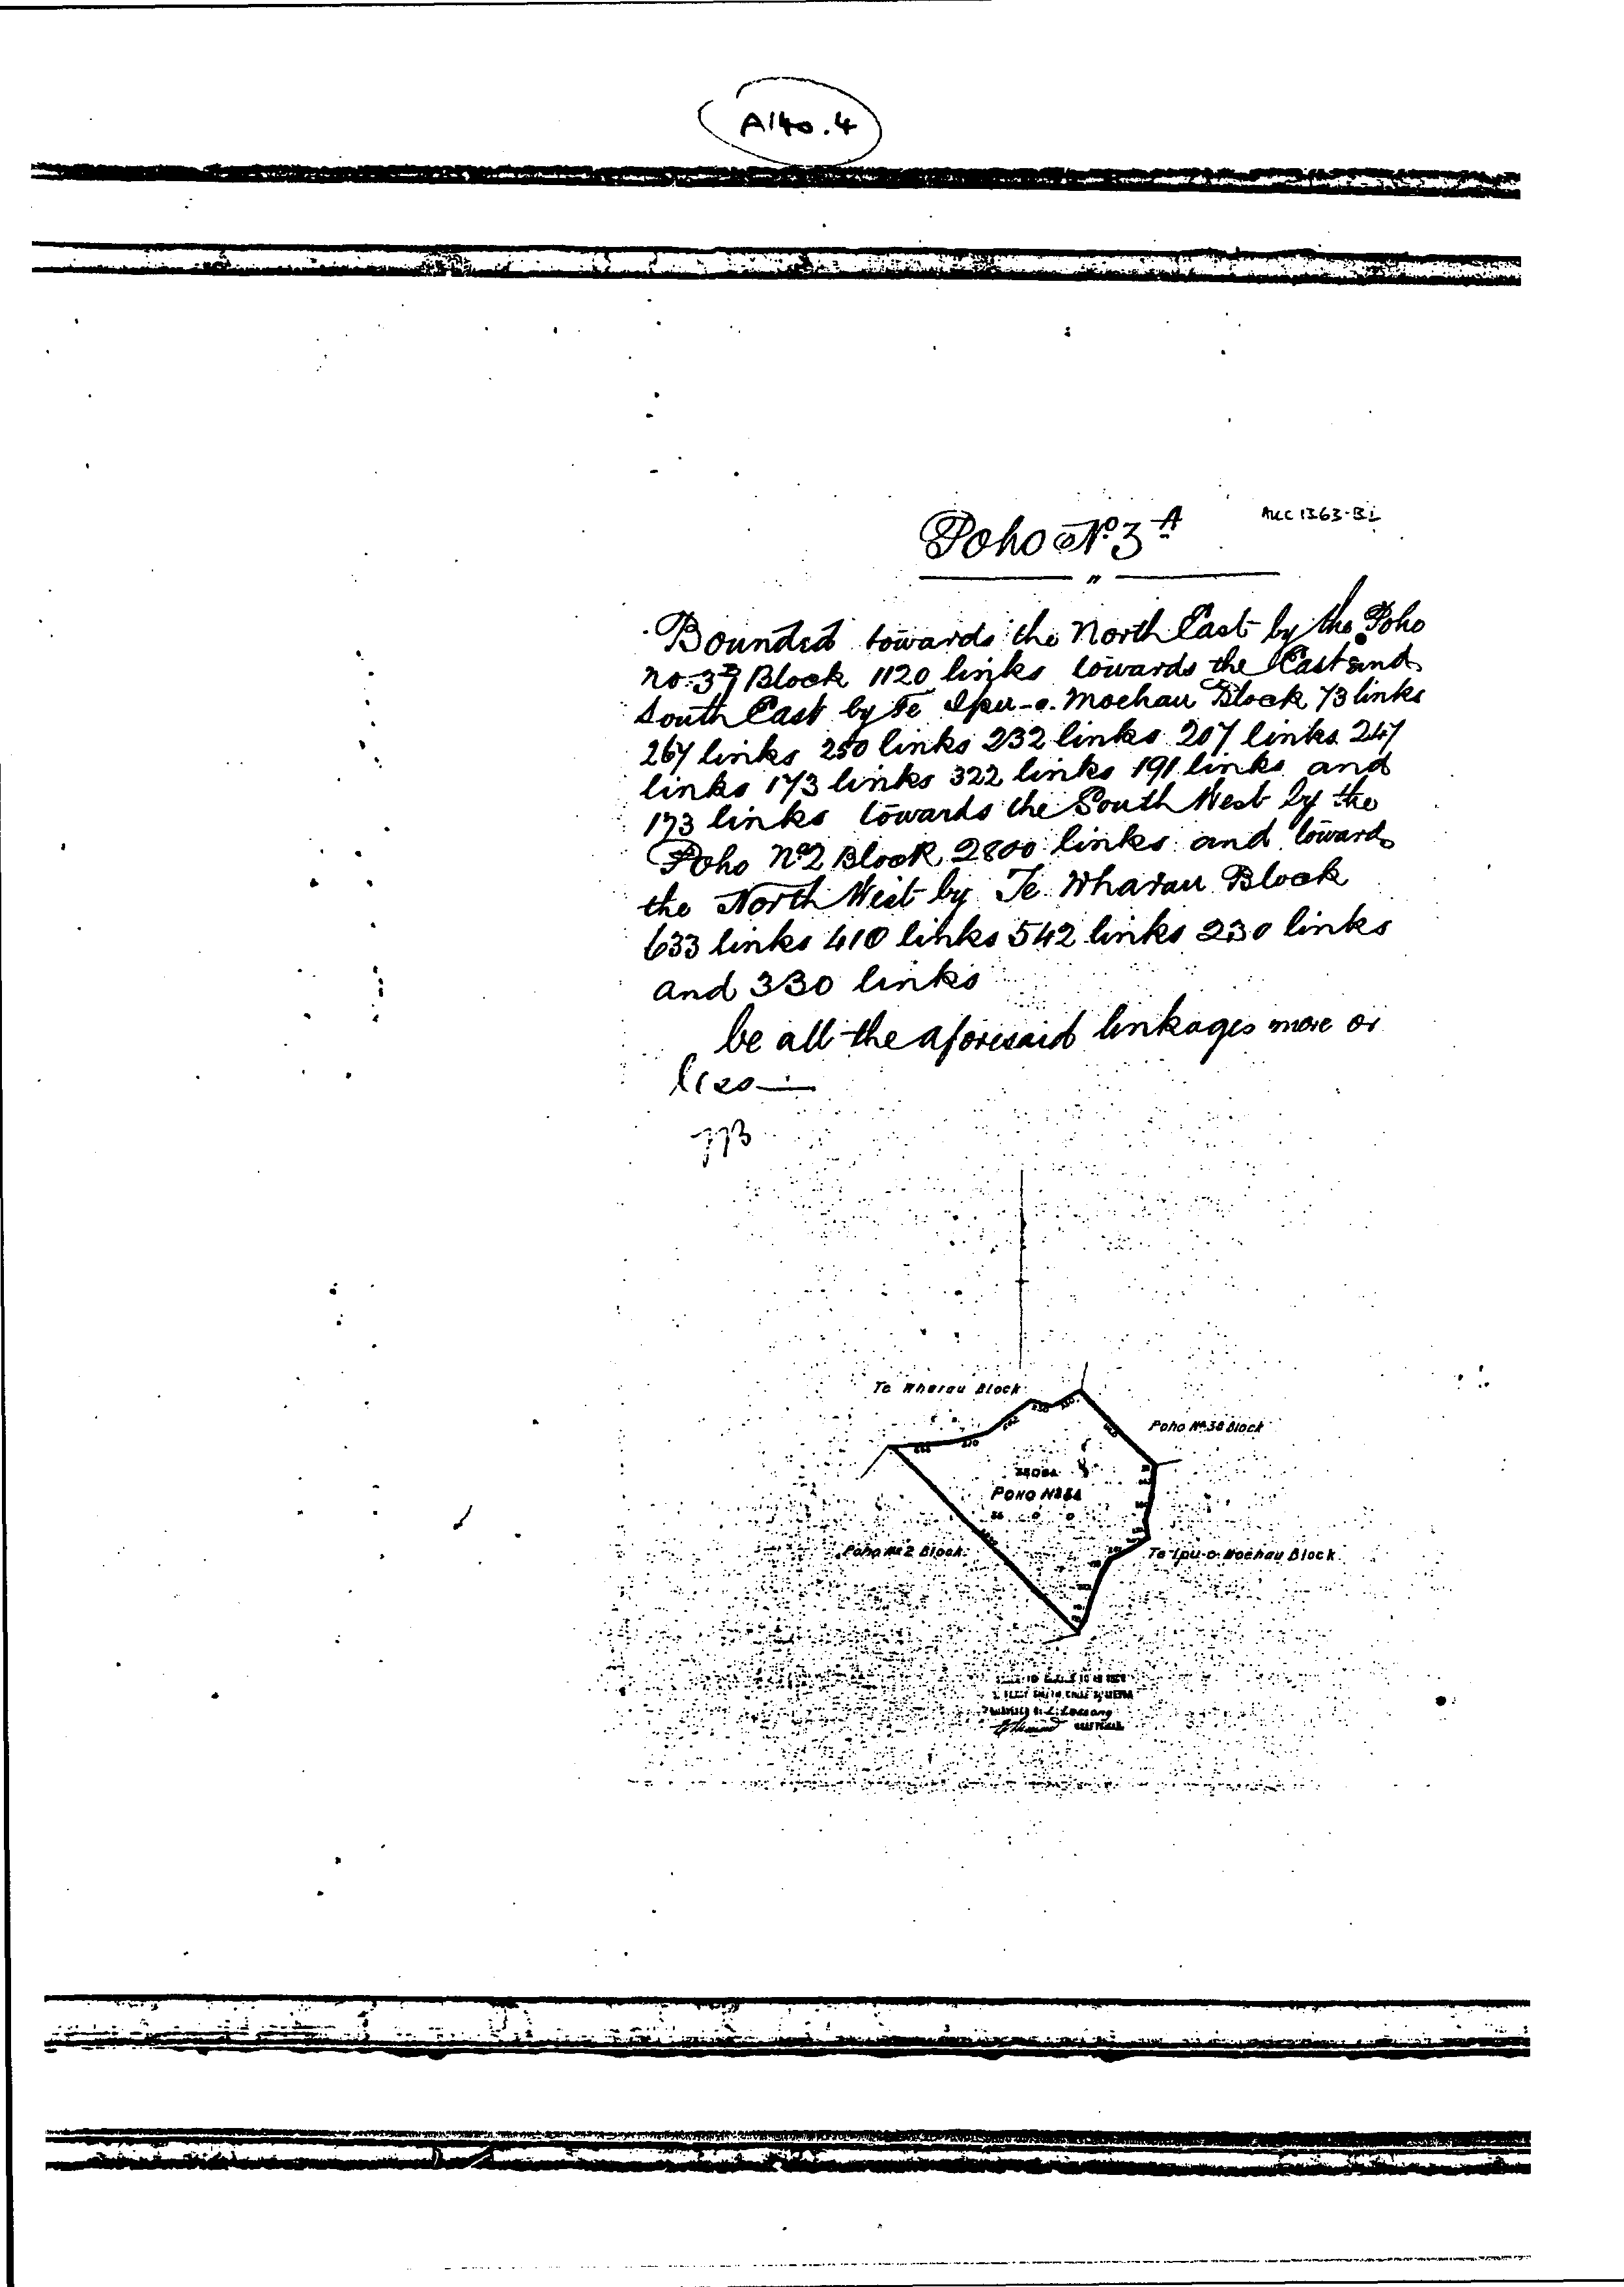 A140.4
Poho No. 3 A
Acc 1363-Bi
"
Bounded towards the North East by the Poho
No. 3B Block 1120 links towards the East and
South East by Te Ipu-o-Moehau Block 73 links
267 links 250 links 232 links 207 links 247
links 173 links 322 links 191 links and
173 links towards the South West by the
Poho No 2 Block 2800 links and towards
the North West by Te Wharau Block
633 links 410 links 542 links 230 links
and 330 links
be all the aforesaid linkages more or
less
Te Wharau Block
Poho No. 3B Block
Poho No 3A
36 0 0
Poho No 2 Block
Te Ipu-o-Moehau Block